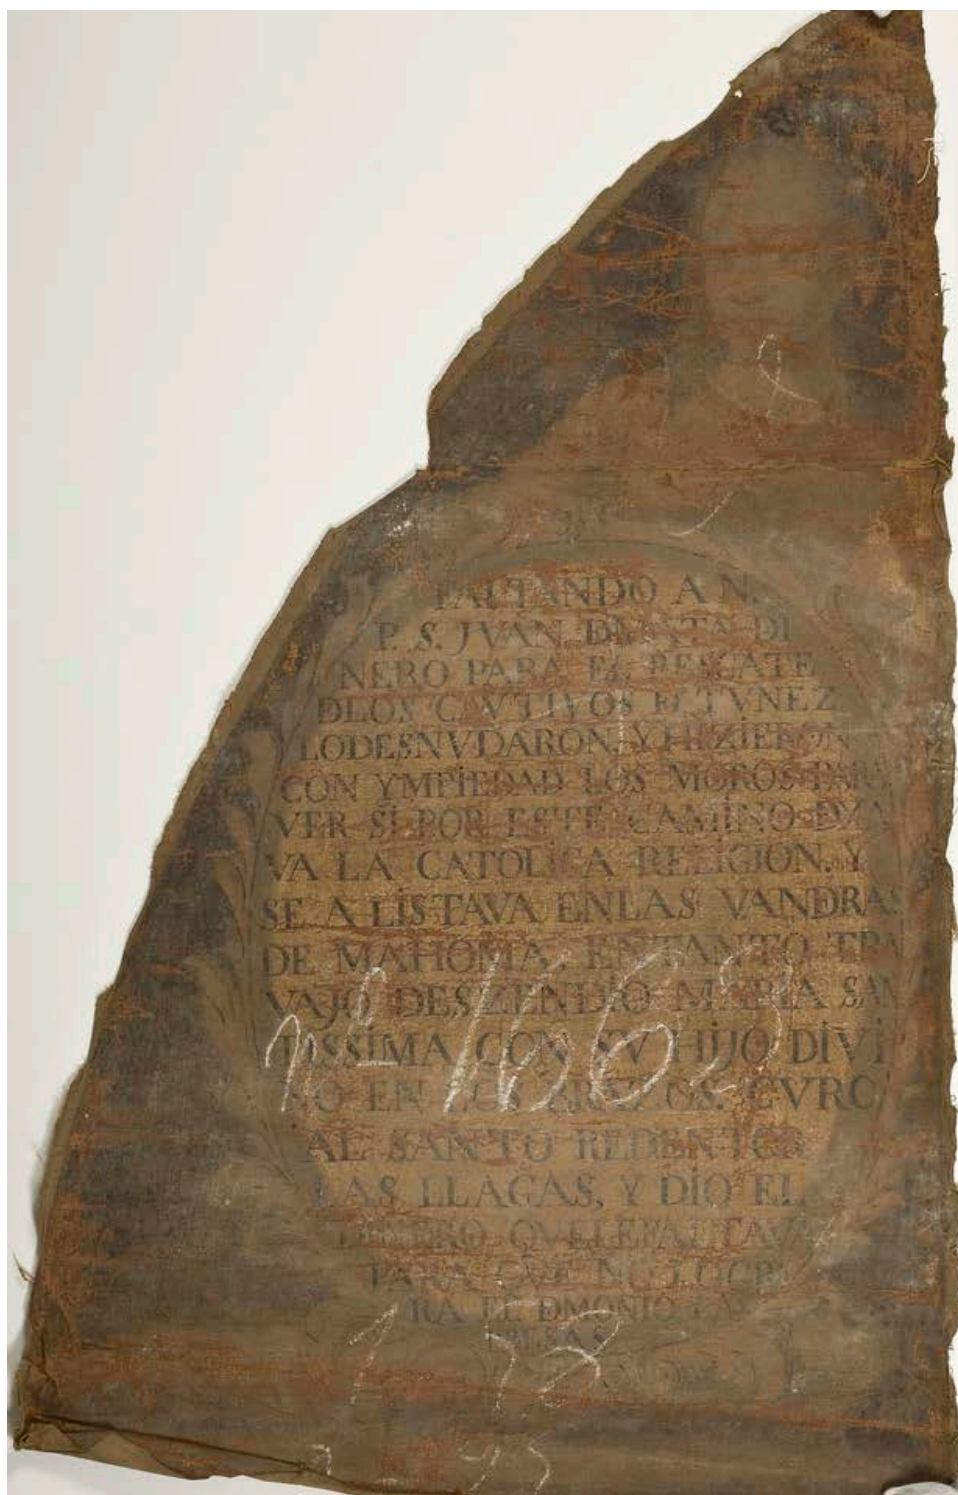 FALTANDO A N.
P. S. JVAN D MATA DI
NERO PARA EL RESCATE
DLOS CAVTIVOS
LO DESNVDARON, Y HIZIERON
CON YMPIEDAD LOS MOROS PARA
VER SI POR ESTE CAMINO
VA LA CATOLICA RELIGION. Y
SE ALISTAVA EN LAS VANDRAS
DE MAHOMA. EN TANTO TRA
VAJO DESZENDIO MARIA SAN
TISSIMA CON SV HIJO DIVI
NO EN LOS BRAZOS. CVRO
AL SANTO REDENTOR
LAS LLAGAS, Y DIO EL
DINERO QVE LE FALTAVA
PARA QVE NO LOGRA
RA EL DMONIO LA
nº 1662